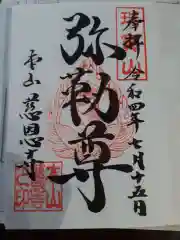 奉拝
令和四年七月十五日
弥勒尊
慈恩寺